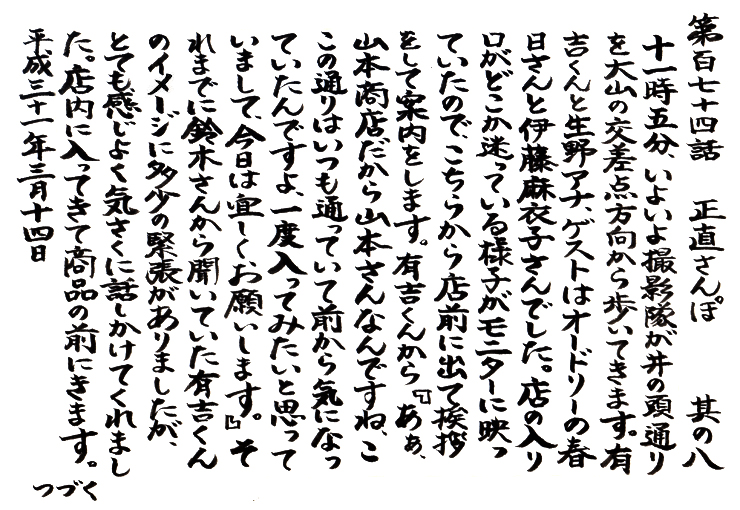 第百七十四話　正直さんぽ　其の八
十一時五分、いよいよ撮影隊が井の頭通り
を大山の交差点方向から歩いてきます。有
吉くんと生野アナ、ゲストはオードリーの春
日さんと伊藤麻衣子さんでした。店の入り
口がどこか迷っている様子がモニターに映っ
ていたので、こちらから店前に出て挨拶
をして案内をします。有吉くんから『あぁ、
山本商店だから山本さんなんですね、こ
この通りはいつも通っていて前から気になっ
ていたんですよ、一度入ってみたいと思って
いまして、今日は宜しくお願いします。』そ
れまでに鈴木さんから聞いていた有吉くん
のイメージに多少の緊張がありましたが、
とても感じよく気さくに話しかけてくれまし
た。店内に入ってきて商品の前にきます。
平成三十一年三月十四日
つづく